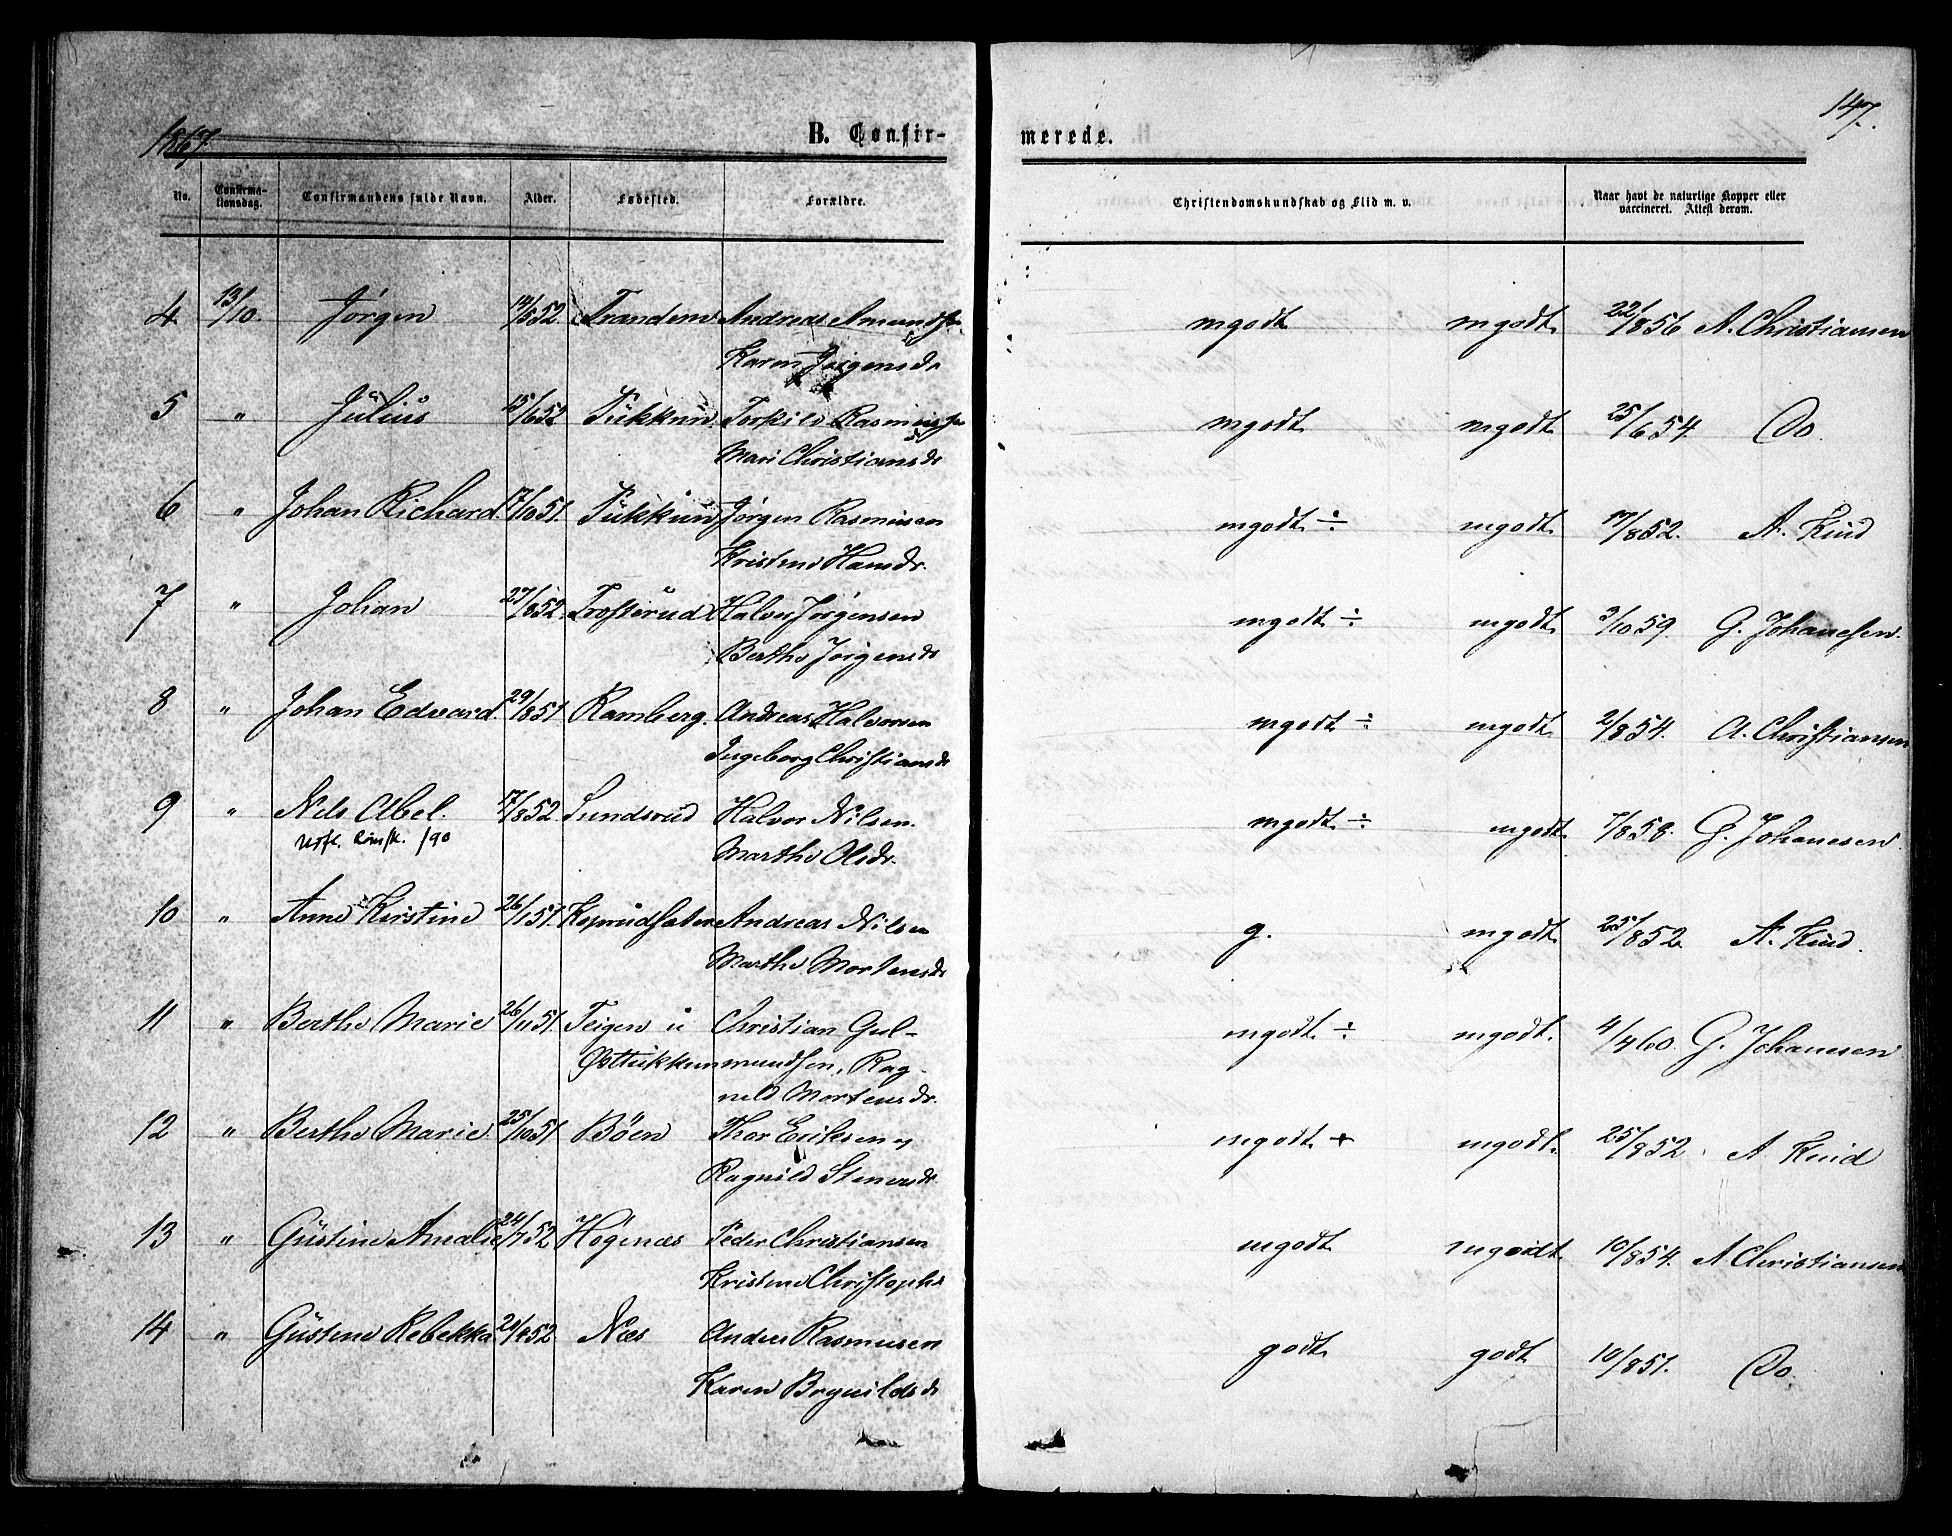 1867.
B. Confir-
merede.
147.
No. Confirma-tionsdag. Confirmandens fulde Navn. Alder. Fødested. Forældre. Christendomskundskab og Flid m. v. Naar havt de naturlige Kopper eller vaccineret. Attest derom.
4 13/10. Jørgen 14/8 52 Trandem Andreas Amundsen mgodt mgodt 22/8 56 A. Christiansen
Karen Jørgensdr
5 " Julius 15/6 52 Tukkun Torkild Rasmussen mgodt mgodt 25/6 54. Do.
Mari Christiansdr
6 " Johan Richard. 17/10 51. Tukkun Jørgen Rasmusen mgodt ÷ mgodt 17/8 52. A. Kind
Kristine Hansdr.
7 " Johan 27/8 52. Trosterud Halvor Jørgensen mgodt ÷ mgodt 3/10 59. G. Johanesen.
Berthe Jørgensdr
8 " Johan Edvard. 29/8 51 Ramberg. Andreas Halvorsen mgodt ÷ mgodt 2/8 54. A. Christiansen
Ingeborg Christiansdr
9 " Nils Abel. 17/8 52. Sundsrud Halvor Nilsen. mgodt ÷ mgodt 7/8 58. G. Johanesen.
/90 Marthe Olsdr.
10 " Anne Kirstine 26/1 51. Andreas Nilsen g. mgodt 25/8 52. A. Kind.
Marthe Mortensdr
11 " Berthe Marie 26/11 51. Teigen u Christian Gul- mgodt ÷ mgodt. 4/4 60. G. Johanesen
Østtukkun mundsen, Rag-
nild Mortensdr.
12 " Berthe Marie 25/10 51 Bøen Thor Eriksen og mgodt + mgodt. 25/8 52 A Kind
Ragnild Stenersdr.
13 " Gustine Amalie 24/7 52 Høgenæs Peder Christiansen mgodt mgodt 10/8 54. A Christiansen
Kristine Christophs
14 " Gustine Rebekka. 20/4 52. Næs Anders Rasmusen godt godt 10/8 51. Do.
Karen Brynildsdr